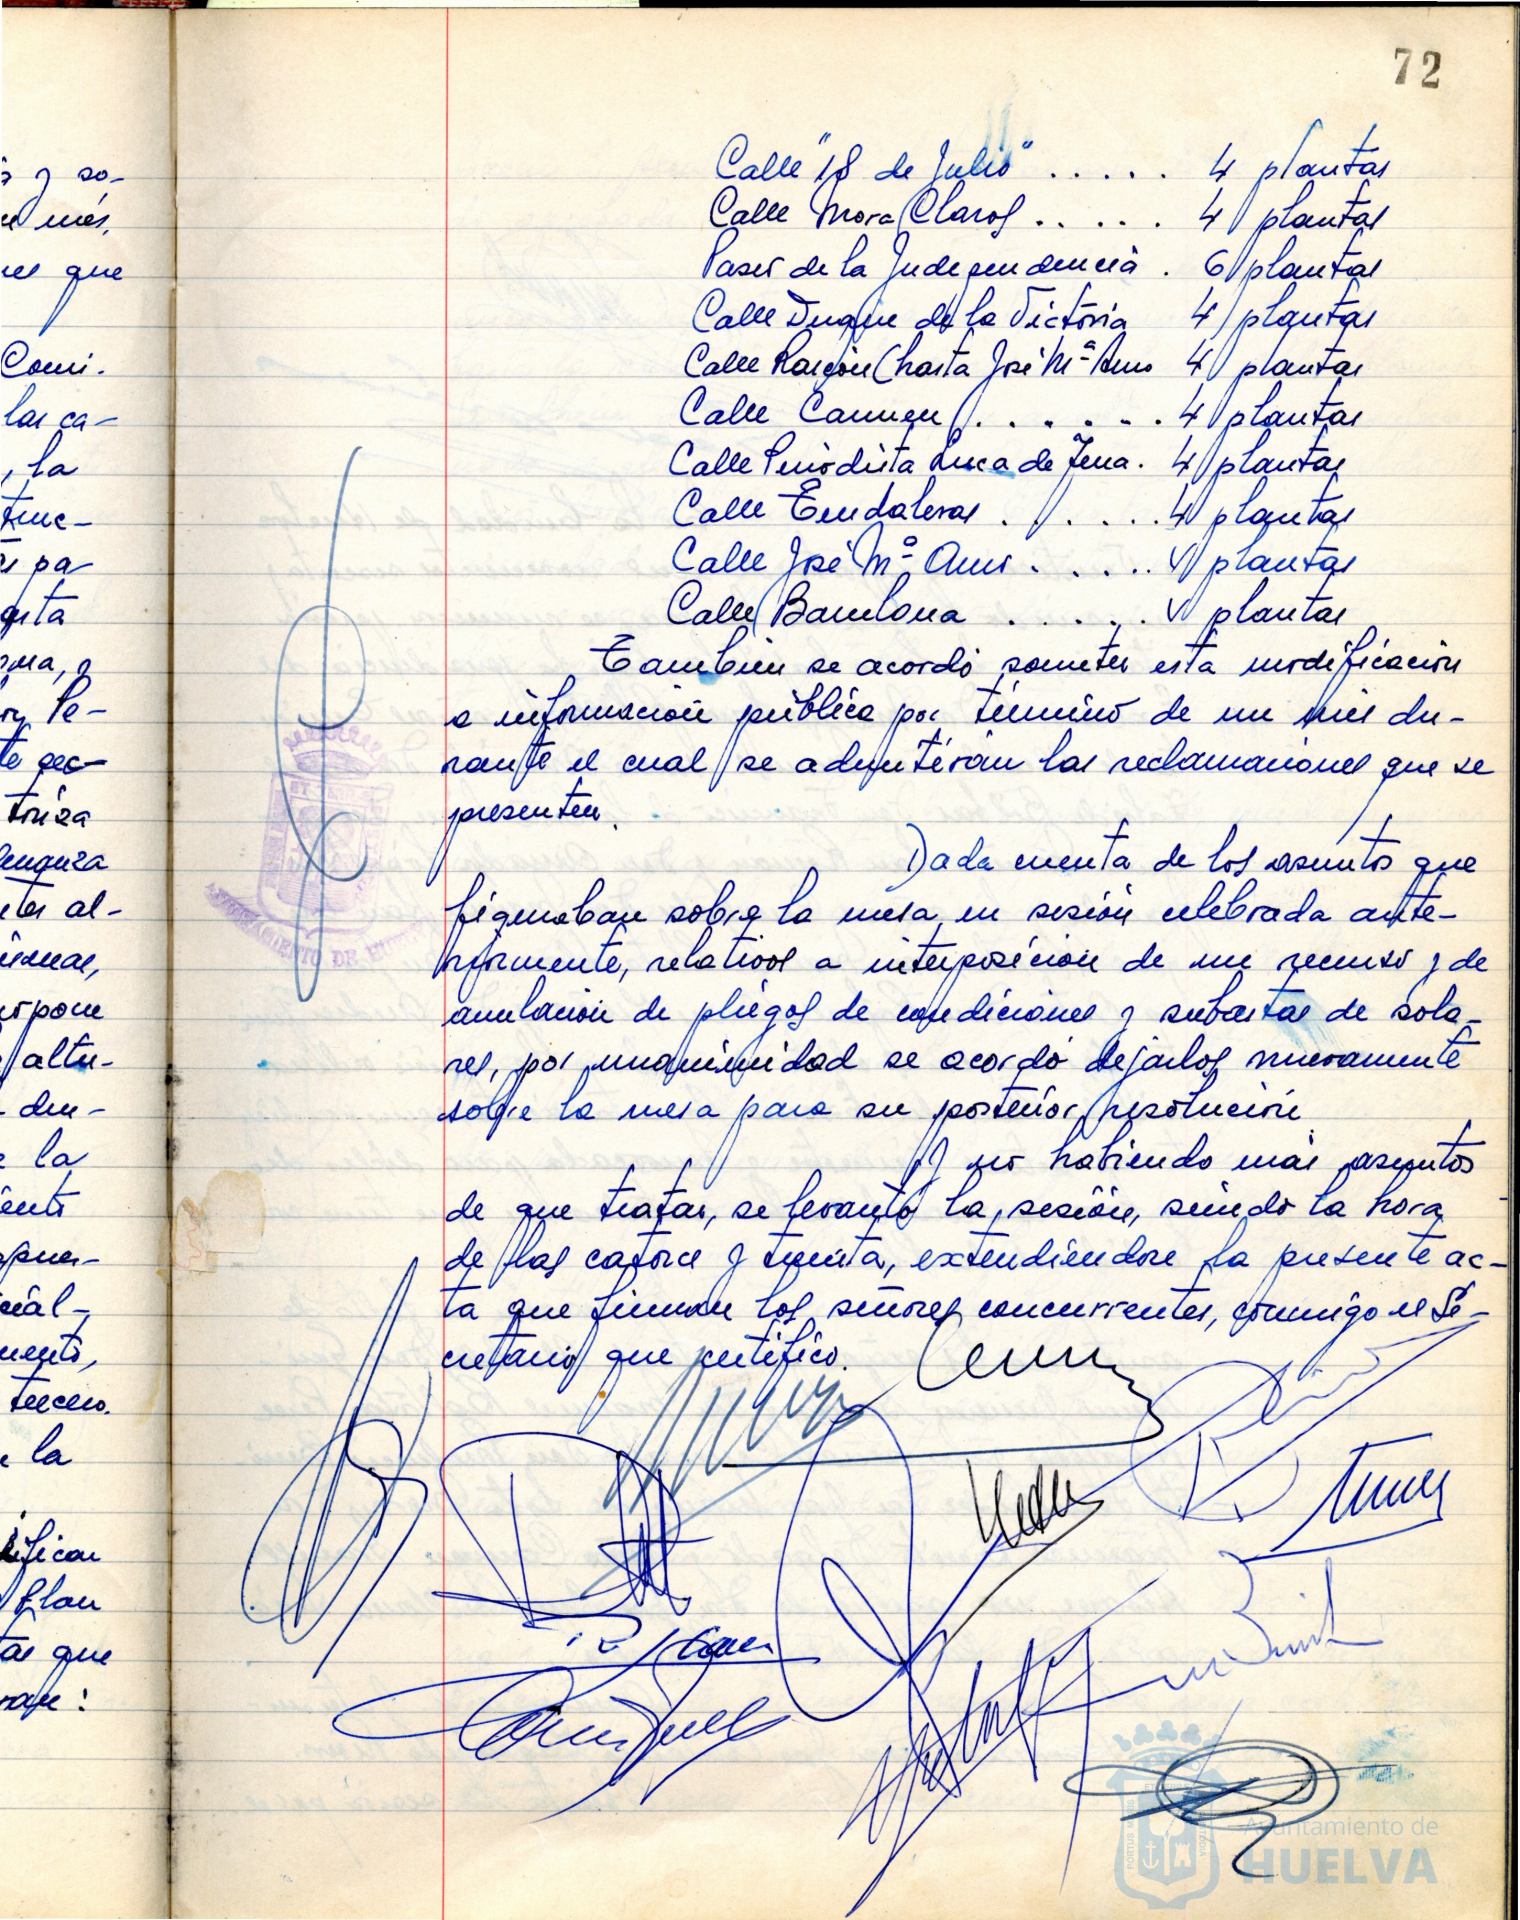 72
s y so-
es que
Comi-
las ca-
, la
truc-
pa-
Pe-
triza
al-
altu-
- du-
la
cial-
tercero.
la
que
Calle "18 de Julio" ..... 4 plantas
Calle Mora Claros ..... 4 plantas
Paseo de la Independencia . 6 plantas
Calle Duque de la Victoria 4 plantas
Calle Rascón (hasta José Mª Amo 4 plantas
Calle Carmen ...... 4 plantas
Calle Periodista Luca de Tena . 4 plantas
Calle Tendaleras ..... 4 plantas
Calle José Mª Amo ..... 4 plantas
Calle Barcelona ..... plantas
También se acordó someter esta modificación
a información pública por término de un mes du-
rante el cual se admitirán las reclamaciones que se
presenten.
Dada cuenta de los asuntos que
figuraban sobre la mesa en sesión celebrada ante-
riormente, relativos a interposición de un recurso y de
anulación de pliegos de condiciones y subastas de sola-
res, por unanimidad se acordó dejarlos nuevamente
sobre la mesa para su posterior resolución.
Y no habiendo más asuntos
de que tratar, se levantó la sesión, siendo la hora
de las catorce y treinta, extendiéndose la presente ac-
ta que firman los señores concurrentes, conmigo el Se-
cretario que certifico.
AYUNTAMIENTO DE HUELVA
Ayuntamiento de
HUELVA